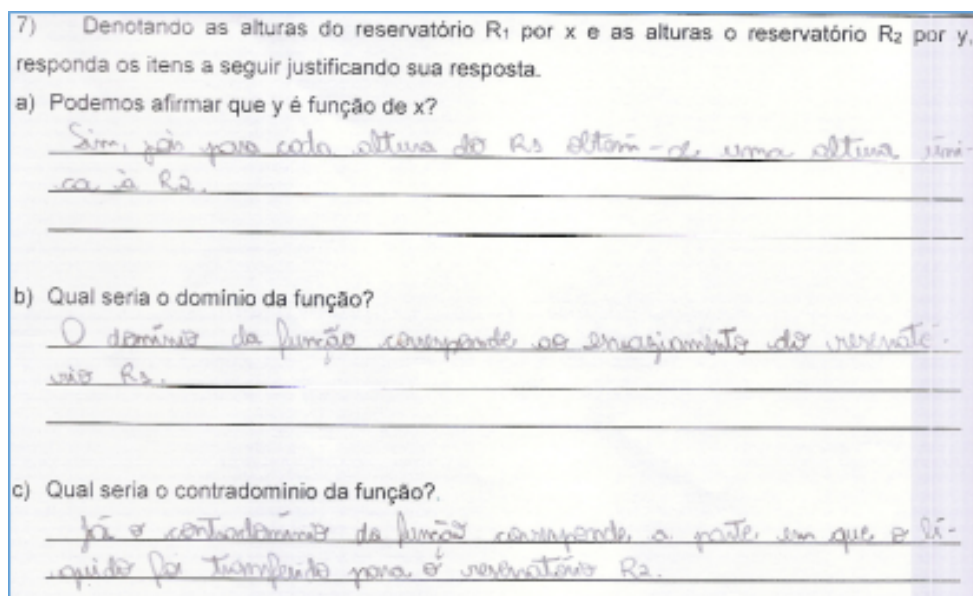 7) Denotando as alturas do reservatório R₁ por x e as alturas o reservatório R₂ por y,
responda os itens a seguir justificando sua resposta.
a) Podemos afirmar que y é função de x?
Sim, pois para cada altura do R1 obtém-se uma altura úni-
ca à R2.
b) Qual seria o domínio da função?
O domínio da função corresponde ao esvaziamento do reservató-
rio R1.
c) Qual seria o contradomínio da função?.
Já o contradomínio da função corresponde a parte em que o lí-
quido foi transferido para o reservatório R2.